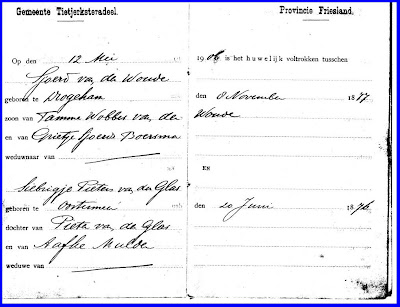 Gemeente Tietjerksteradeel. Provincie Friesland,
Op den 12 Mei 1906 is het huwelijk voltrokken tusschen
Sjoerd van der Woude
geboren te Drogeham den 8 November 1877
zoon van Tamme Wobbes van der Woude
en van Grietje Sjoerds Boersma
weduwnaar van
EN
Siebrigje Pieters van der Glas
geboren te Oostermeer den 20 Juni 1876
dochter van Pieter van der Glas
en van Aafke Mulder
weduwe van